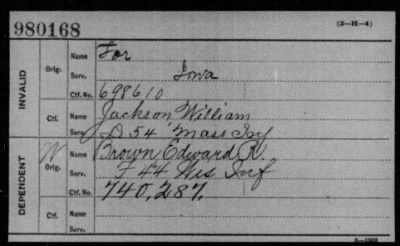 980168
(3-H-4)
INVALID
Orig.
Name For
Serv. Iowa
Ctf. No. 698610
Ctf.
Name Jackson William
Serv. D 54 Mass Inf
DEPENDENT
W Orig.
Name Brown, Edward R.
Serv. F 44 Wis Inf
Ctf. No. 740,287.
Ctf.
Name
Serv.